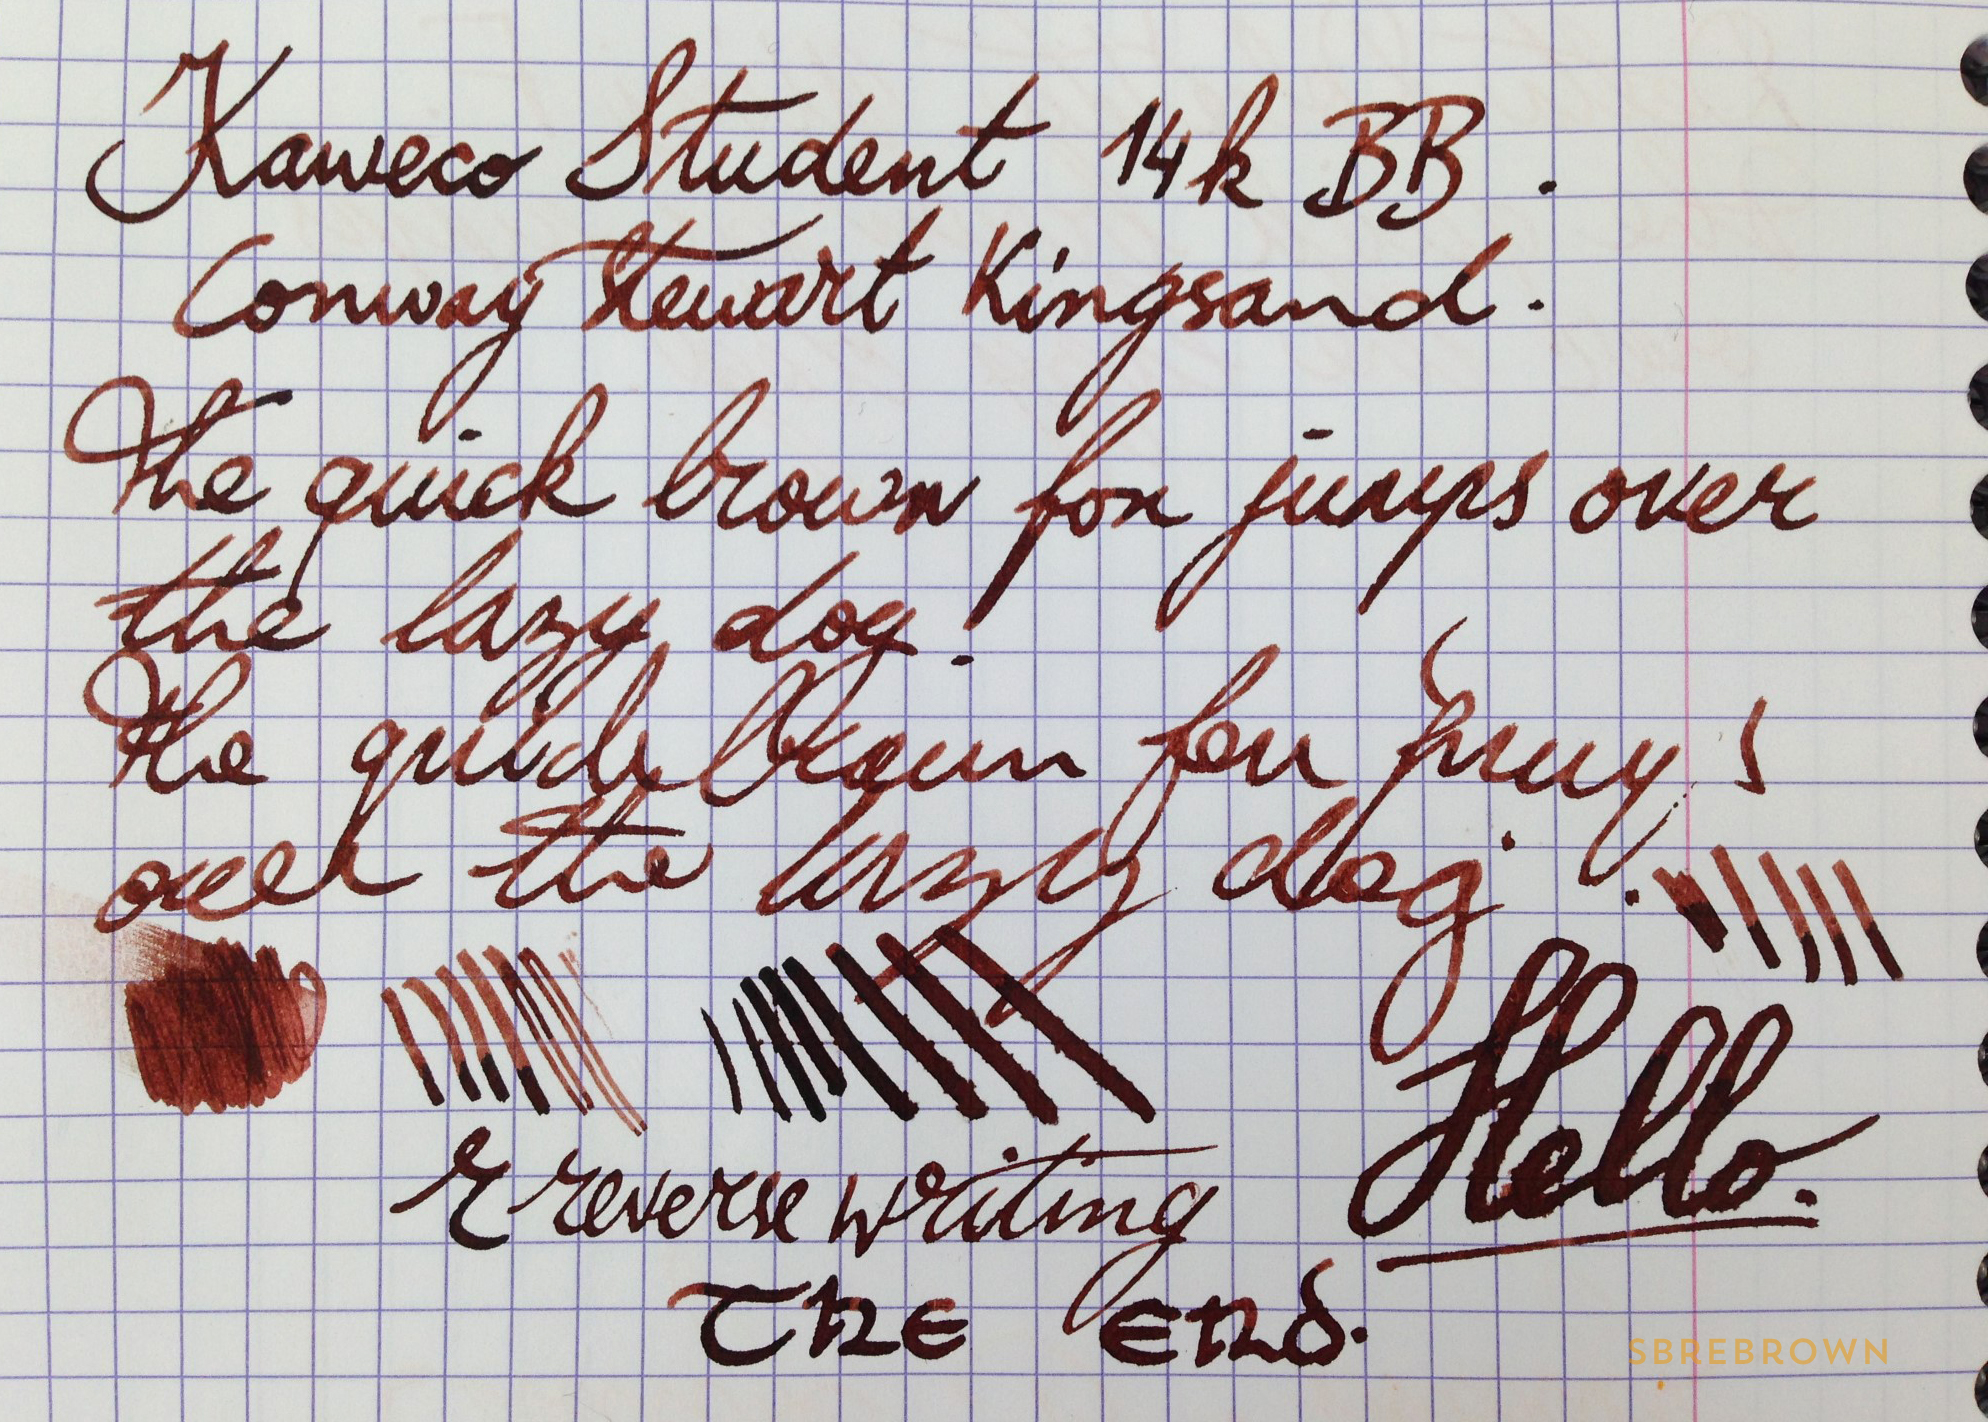 Kaweco Student 14k BB .
Conway Stewart Kingsand .
The quick brown fox jumps over
the lazy dog .
The quick brown fox jumps
over the lazy dog .
Hello .
& reverse writing
The End .
SBREBROWN